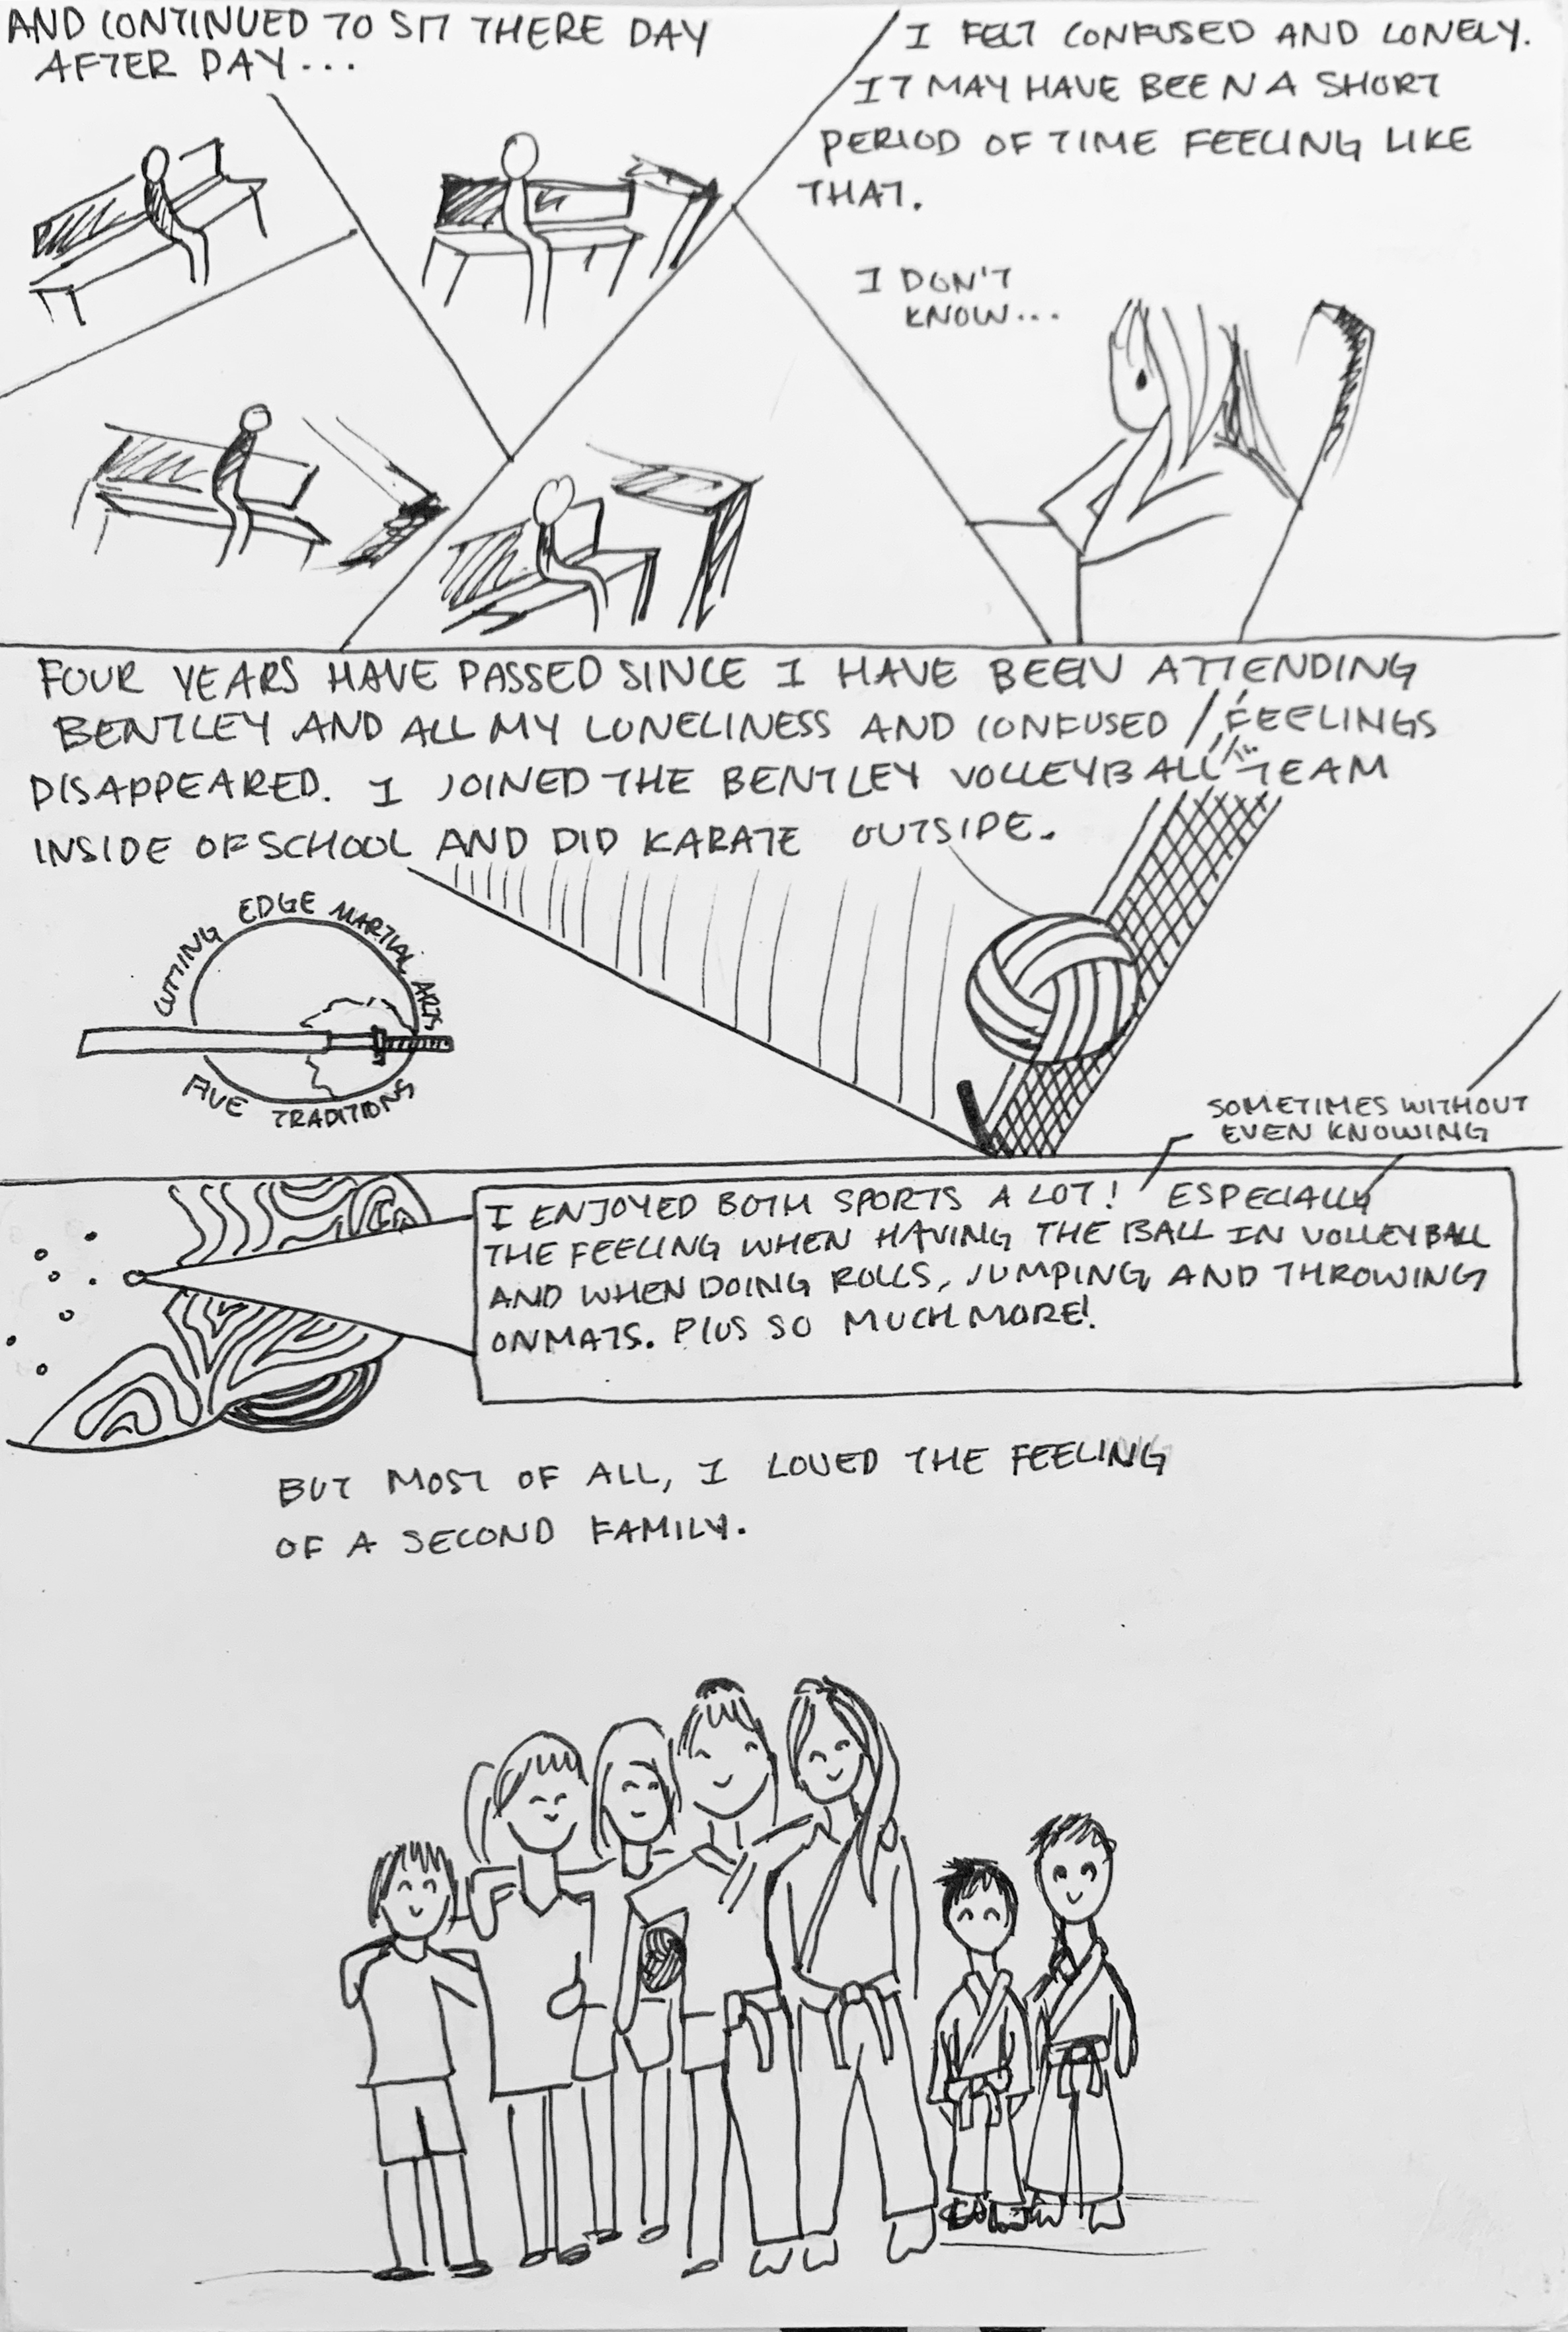 AND CONTINUED TO SIT THERE DAY
AFTER DAY...
I FELT CONFUSED AND LONELY.
IT MAY HAVE BEEN A SHORT
PERIOD OF TIME FEELING LIKE
THAT.
I DON'T
KNOW...
FOUR YEARS HAVE PASSED SINCE I HAVE BEEN ATTENDING
BENTLEY AND ALL MY LONELINESS AND CONFUSED FEELINGS
DISAPPEARED. I JOINED THE BENTLEY VOLLEYBALL TEAM
INSIDE OF SCHOOL AND DID KARATE OUTSIDE.
CUTTING EDGE MARTIAL ARTS
FIVE TRADITIONS
SOMETIMES WITHOUT
EVEN KNOWING
I ENJOYED BOTH SPORTS A LOT! ESPECIALLY
THE FEELING WHEN HAVING THE BALL IN VOLLEYBALL
AND WHEN DOING ROLLS, JUMPING, AND THROWING
ON MATS. PLUS SO MUCH MORE!
BUT MOST OF ALL, I LOVED THE FEELING
OF A SECOND FAMILY.